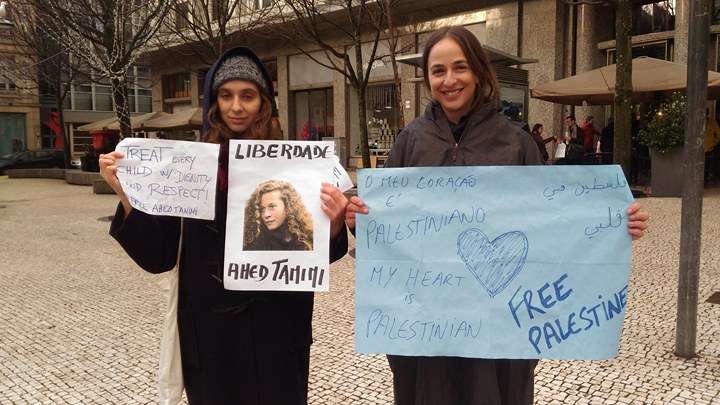 TREAT EVERY
CHILD W/ DIGNITY
AND RESPECT!
FREE AHED TAMIMI
LIBERDADE
AHED TAMIMI
O MEU CORAÇÃO
É
PALESTINIANO
MY HEART
is
PALESTINIAN
فلسطين في
قلبي
FREE
PALESTINE